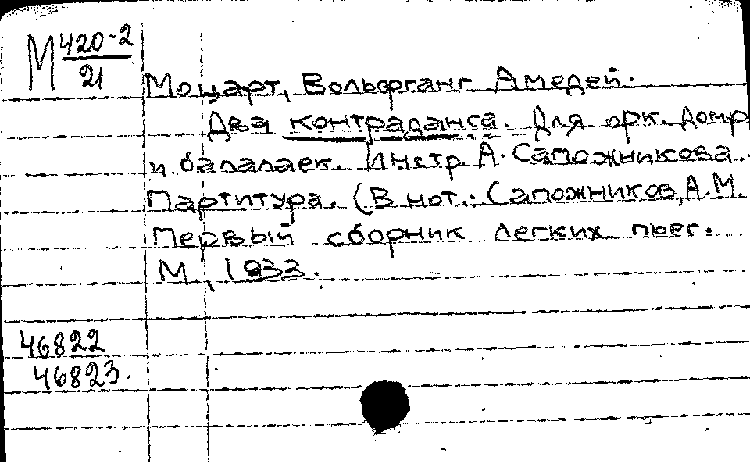 М 420-2
21
Моцарт, Вольфганг Амедей.
Два контраданса. Для орк. домр
и балалаек. Инстр. А. Сапожникова.
Партитура. (В нот.: Сапожников, А.М.
Первый сборник легких пьес.
М., 1933.
46822
46823.